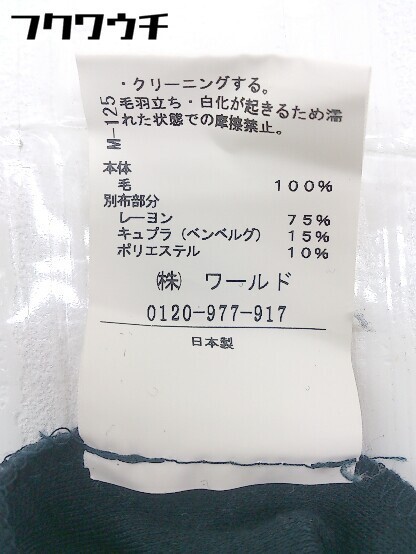 フクワウチ
・クリーニングする。
毛羽立ち・白化が起きるため濡
れた状態での摩擦禁止。
M-125
本体
毛 100%
別布部分
レーヨン 75%
キュプラ（ベンベルグ） 15%
ポリエステル 10%
㈱ ワールド
0120-977-917
日本製